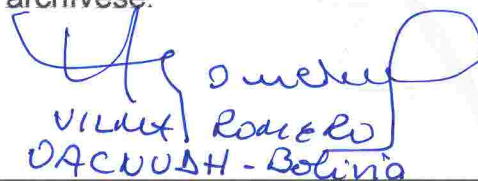 archívese.
VILMA ROMERO
OACNUDH - Bolivia